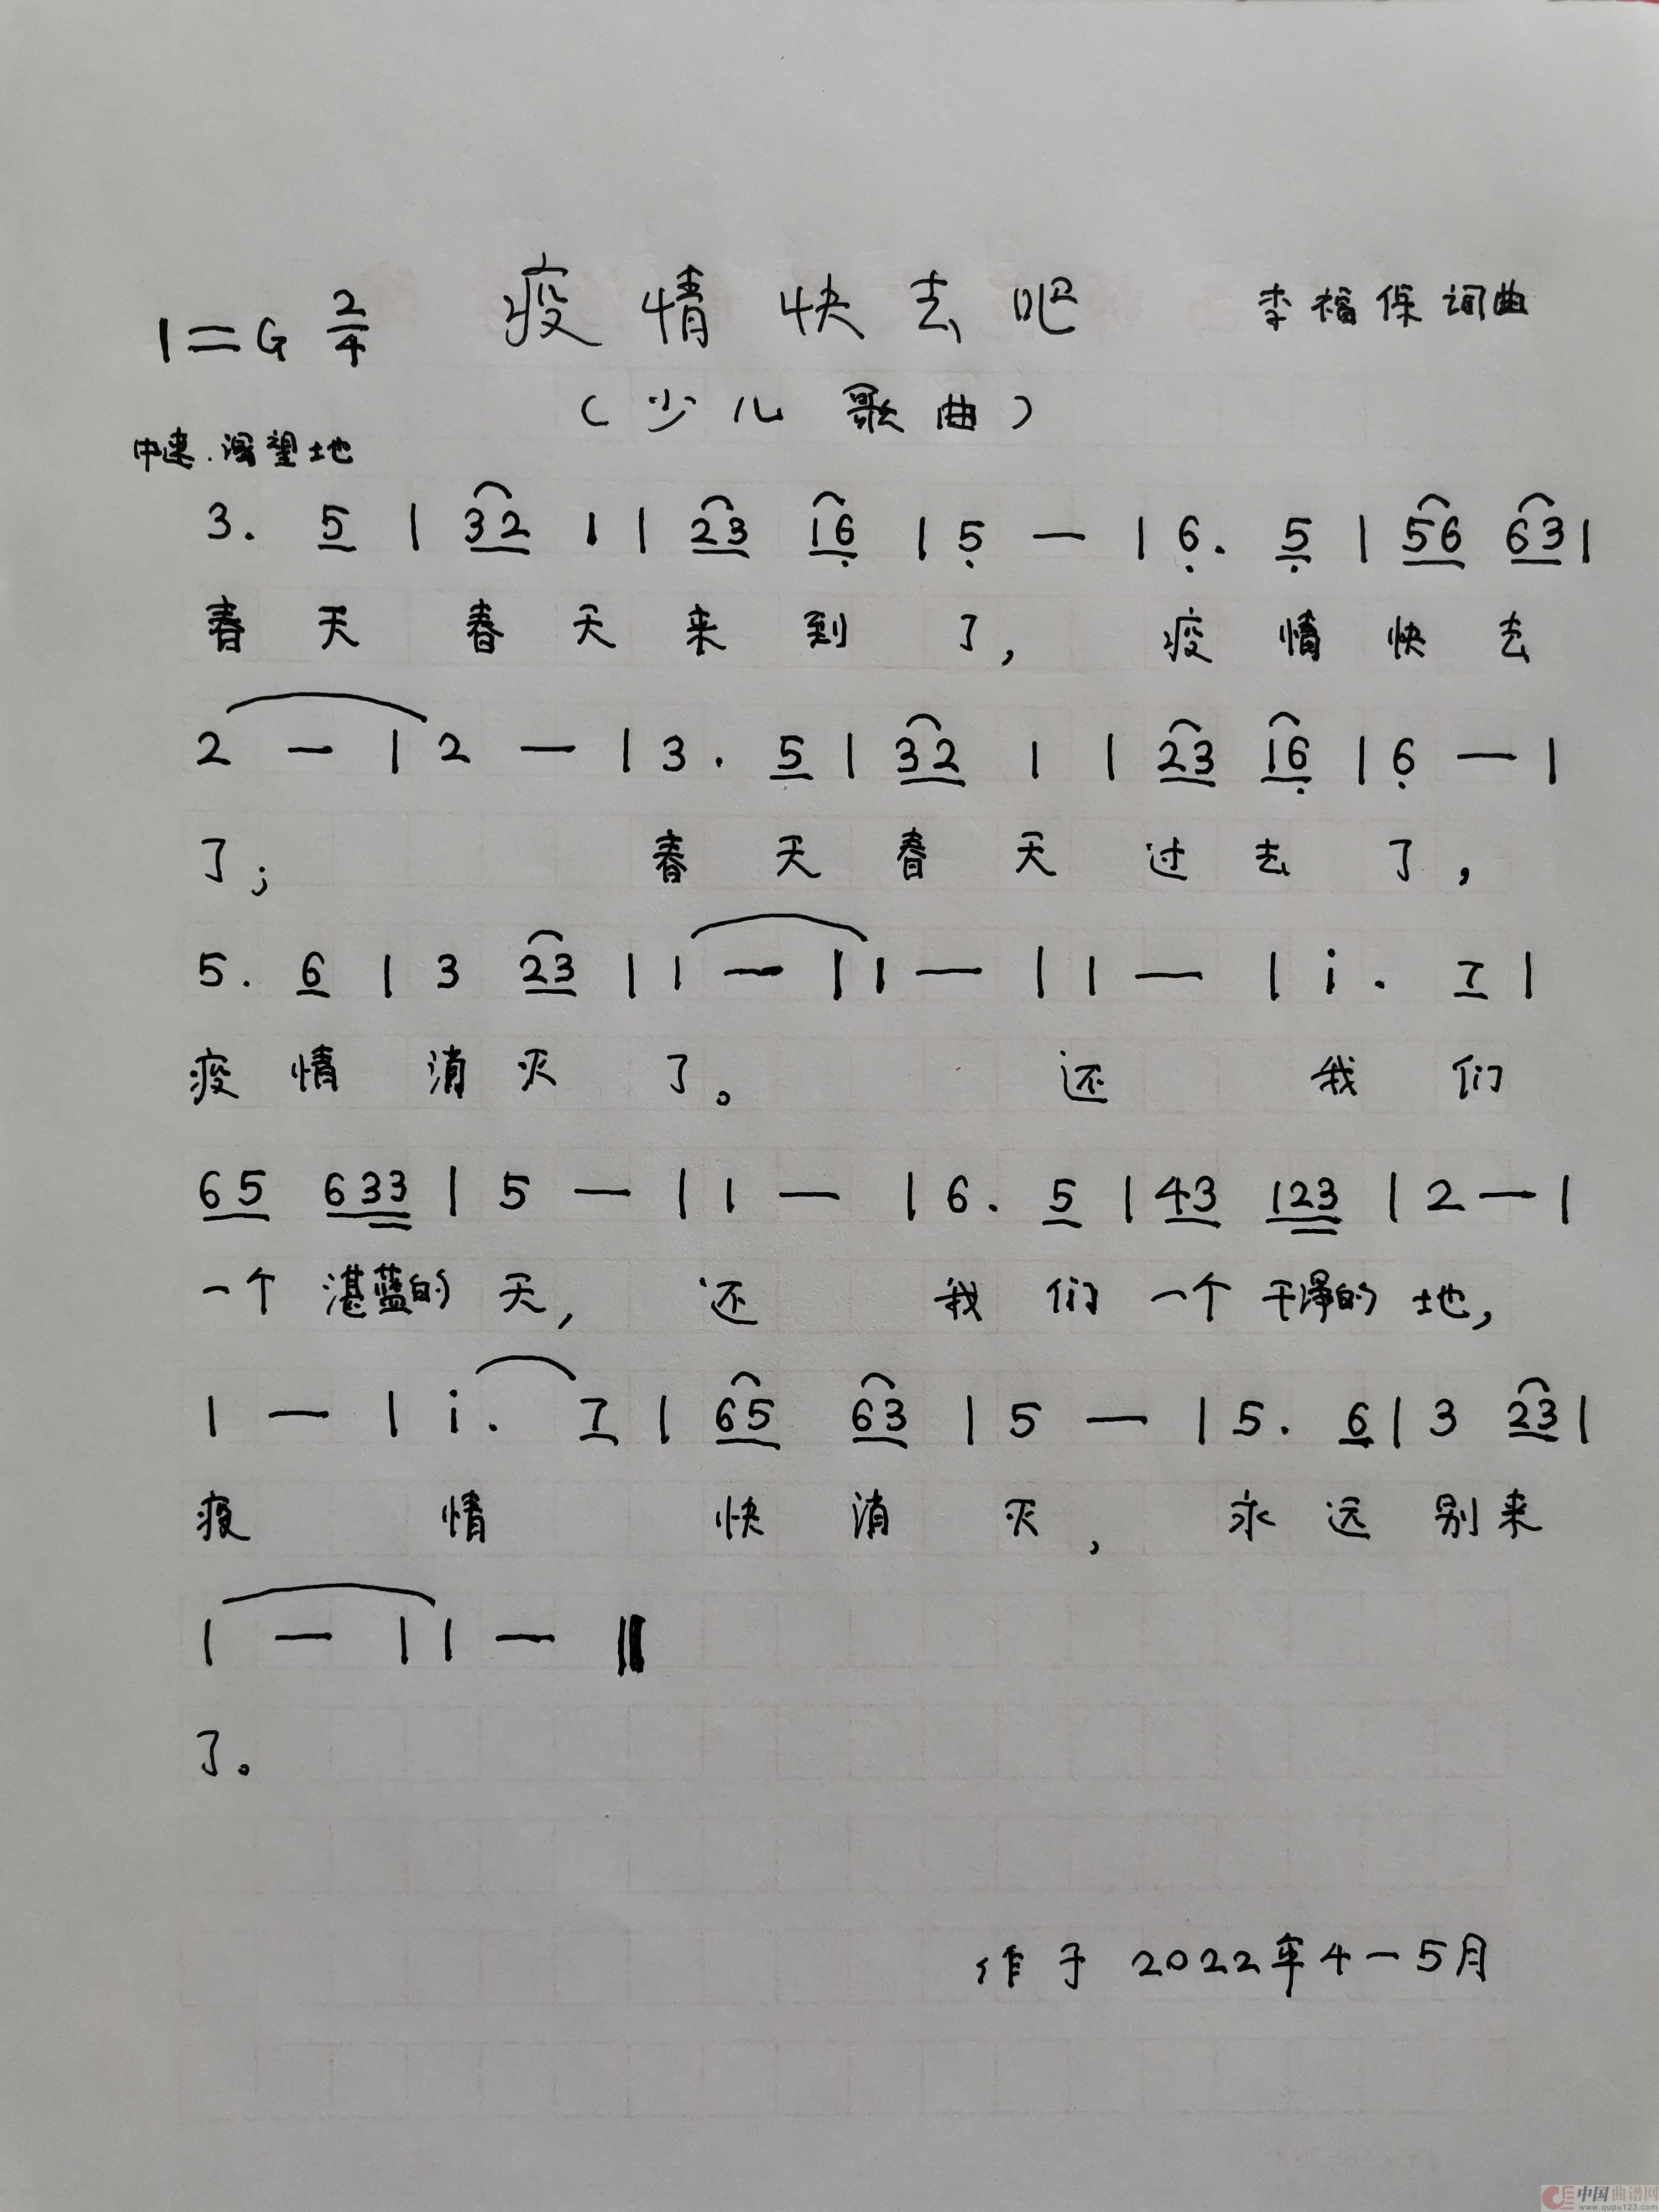 1=G 2/4 疫情快去吧 李福保词曲
(少儿歌曲)
中速.渴望地
3. 5 | 32 1 | 23 16 | 5 — | 6. 5 | 56 63 |
春天春天来到了, 疫情快去
2 — | 2 — | 3. 5 | 32 1 | 23 16 | 6 — |
了; 春天春天过去了,
5. 6 | 3 23 | 1 — | 1 — | 1 — | i. 7 |
疫情消灭了。 还我们
65 633 | 5 — | 1 — | 6. 5 | 43 123 | 2 — |
一个湛蓝的天, 还我们一个干净的地,
1 — | i. 7 | 65 63 | 5 — | 5. 6 | 3 23 |
疫情快消灭, 永远别来
1 — | 1 — ‖
了。
作于2022年4-5月
中国曲谱网
www.qupu123.com